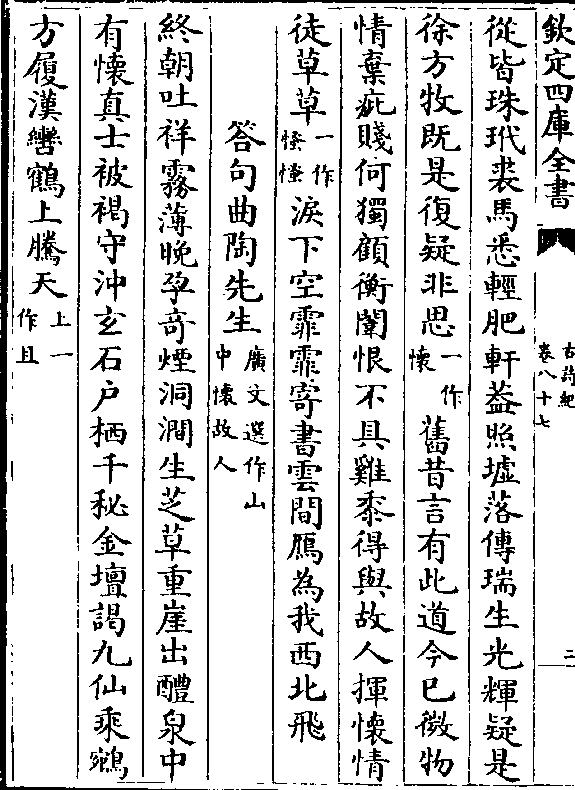 欽定四庫全書
古詩紀
卷八十七
二
從皆珠玳裘馬悉輕肥軒蓋照墟落傳瑞生光輝疑是
徐方牧既是復疑非思一作懷舊昔言有此道今已微物
情棄疵賤何獨顧衡闈恨不具雞黍得與故人揮懷情
徒草草一作慅慅淚下空霏霏寄書雲間鴈為我西北飛
答句曲陶先生廣文選作山中懷故人
終朝吐祥霧薄晚孕奇煙洞澗生芝草重崖出醴泉中
有懷真士被褐守沖玄石户栖千秘金壇謁九仙乘鵷
方履漢轡鶴上騰天上一作且